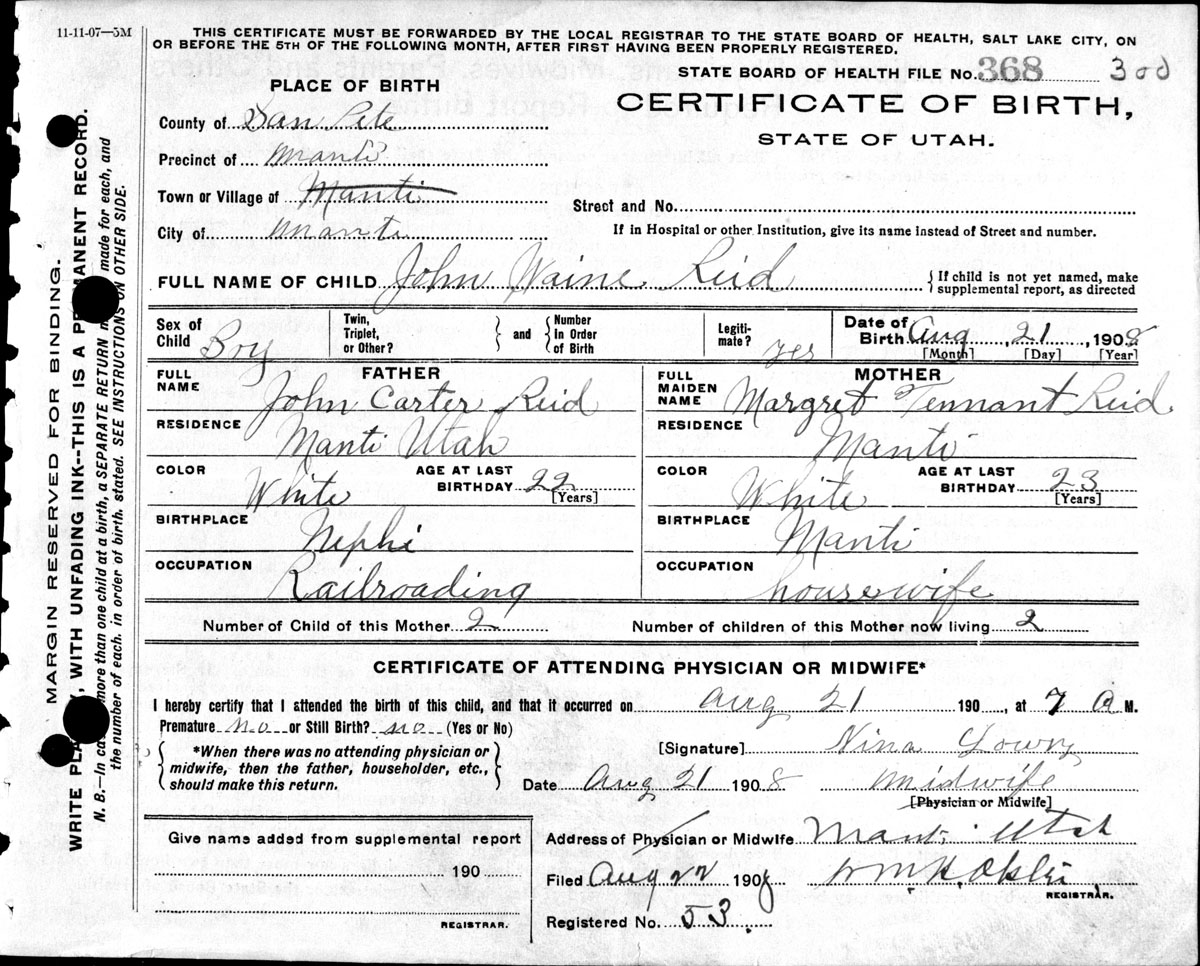 11-11-07—5M
THIS CERTIFICATE MUST BE FORWARDED BY THE LOCAL REGISTRAR TO THE STATE BOARD OF HEALTH, SALT LAKE CITY, ON
OR BEFORE THE 5TH OF THE FOLLOWING MONTH, AFTER FIRST HAVING BEEN PROPERLY REGISTERED.
STATE BOARD OF HEALTH FILE No. 368 300
PLACE OF BIRTH
CERTIFICATE OF BIRTH,
STATE OF UTAH.
County of San Pete
Precinct of Manti
Town or Village of Manti
Street and No.
City of Manti
If in Hospital or other Institution, give its name instead of Street and number.
FULL NAME OF CHILD John Waine Reid
{ If child is not yet named, make
supplemental report, as directed
Sex of Child Boy
Twin, Triplet, or Other? } and { Number In Order of Birth
Legiti-mate? yes
Date of Birth Aug 21, 1908
[Month] [Day] [Year]
FATHER
FULL NAME John Carter Reid
RESIDENCE Manti Utah
COLOR White
AGE AT LAST BIRTHDAY 22 [Years]
BIRTHPLACE Nephi
OCCUPATION Railroading
MOTHER
FULL MAIDEN NAME Margret Tennant Reid
RESIDENCE Manti
COLOR White
AGE AT LAST BIRTHDAY 23 [Years]
BIRTHPLACE Manti
OCCUPATION housewife
Number of Child of this Mother 2
Number of children of this Mother now living 2
CERTIFICATE OF ATTENDING PHYSICIAN OR MIDWIFE*
I hereby certify that I attended the birth of this child, and that it occurred on Aug 21 190 , at 7 A M.
Premature no or Still Birth? no (Yes or No)
{ *When there was no attending physician or
midwife, then the father, householder, etc.,
should make this return. }
[Signature] Nina Lowry
Date Aug 21 1908 Midwife
[Physician or Midwife]
Give name added from supplemental report
190
REGISTRAR.
Address of Physician or Midwife Manti Utah
Filed Aug 22 1908 Wm K.
REGISTRAR.
Registered No. 53.
MARGIN RESERVED FOR BINDING.
WRITE PLA , WITH UNFADING INK--THIS IS A P MANENT RECORD.
N. B.—In ca more than one child at a birth, a SEPARATE RETURN made for each, and
the number of each. in order of birth. stated. SEE INSTRUCTIONS ON OTHER SIDE.